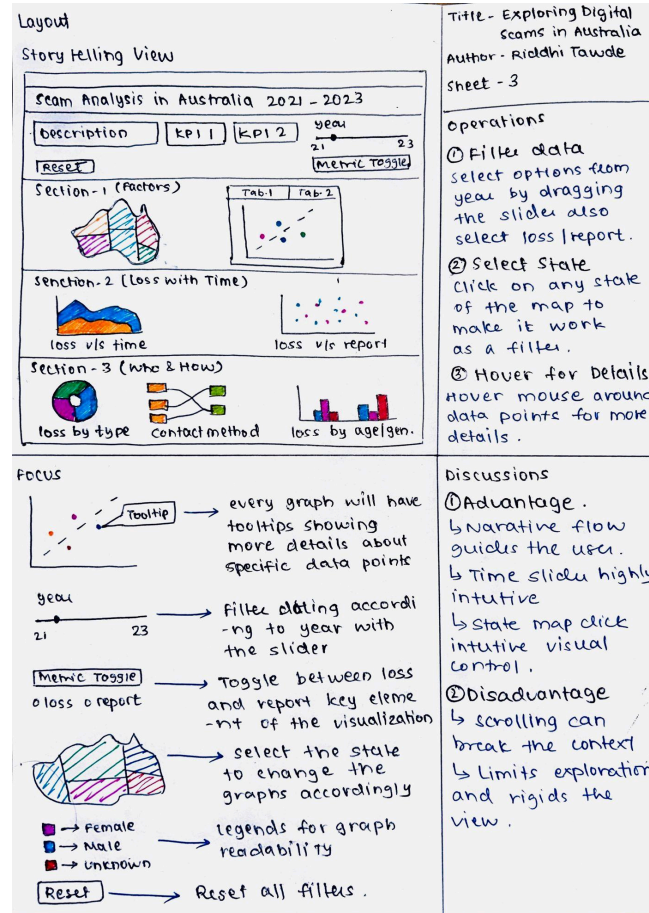 Layout
Story telling View
Scam Analysis in Australia 2021 - 2023
Description
KPI 1
KPI 2
year
21 23
RESET
Metric Toggle
Section - 1 (Factors)
Tab.1 Tab.2
Senction-2 (Loss with Time)
loss v/s time
loss v/s report
Section - 3 (Who & How)
loss by type
contact method
loss by age/gen.
Title - Exploring Digital
Scams in Australia
Author - Riddhi Tawde
Sheet - 3
Operations
① Filter data
select options from
year by dragging
the slider also
select loss/report.
② Select State
Click on any state
of the map to
make it work
as a filter.
③ Hover for Details
Hover mouse around
data points for more
details.
FOCUS
Tooltip
every graph will have
tooltips showing
more details about
specific data points
year
21 23
Filter dating accordi
-ng to year with
the slider
Metric Toggle
o loss o report
Toggle between loss
and report key eleme
-nt of the visualization
select the state
to change the
graphs accordingly
→ Female
→ Male
→ Unknown
legends for graph
readability
Reset
Reset all filters.
Discussions
① Advantage.
↳ Narative flow
guides the user.
↳ Time slider highly
intutive
↳ State map click
intutive visual
control.
② Disadvantage
↳ scrolling can
break the context
↳ Limits exploration
and rigids the
view.